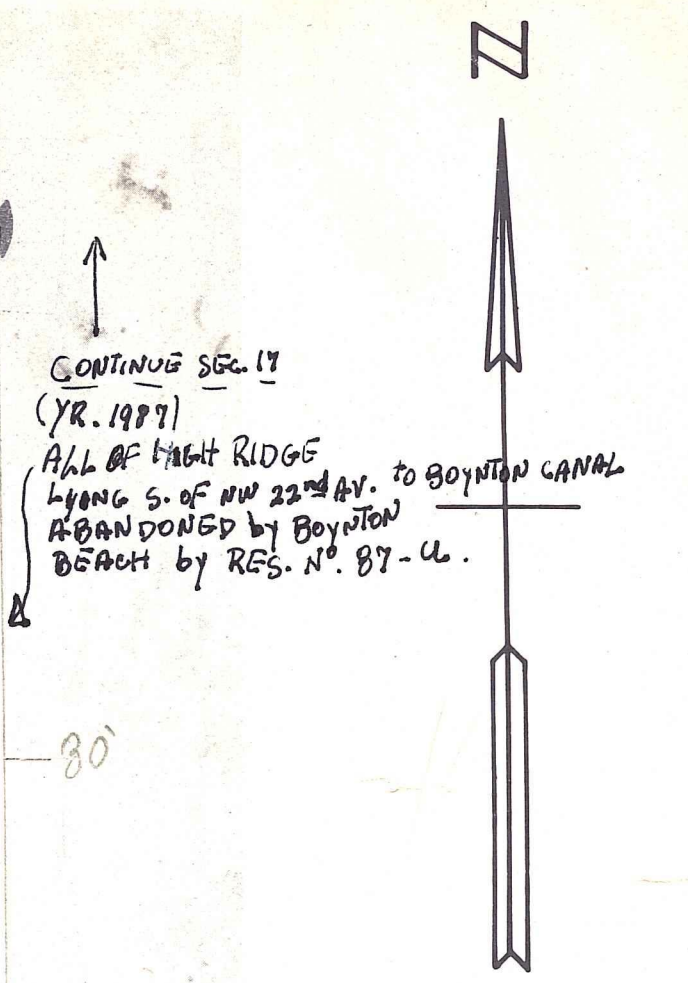 N
CONTINUE SEC. 17
(YR. 1987)
ALL OF HIGH RIDGE
LYONG S. OF NW 22nd AV. to BOYNTON CANAL
ABANDONED by BOYNTON
BEACH by RES. Nº. 87-
30'